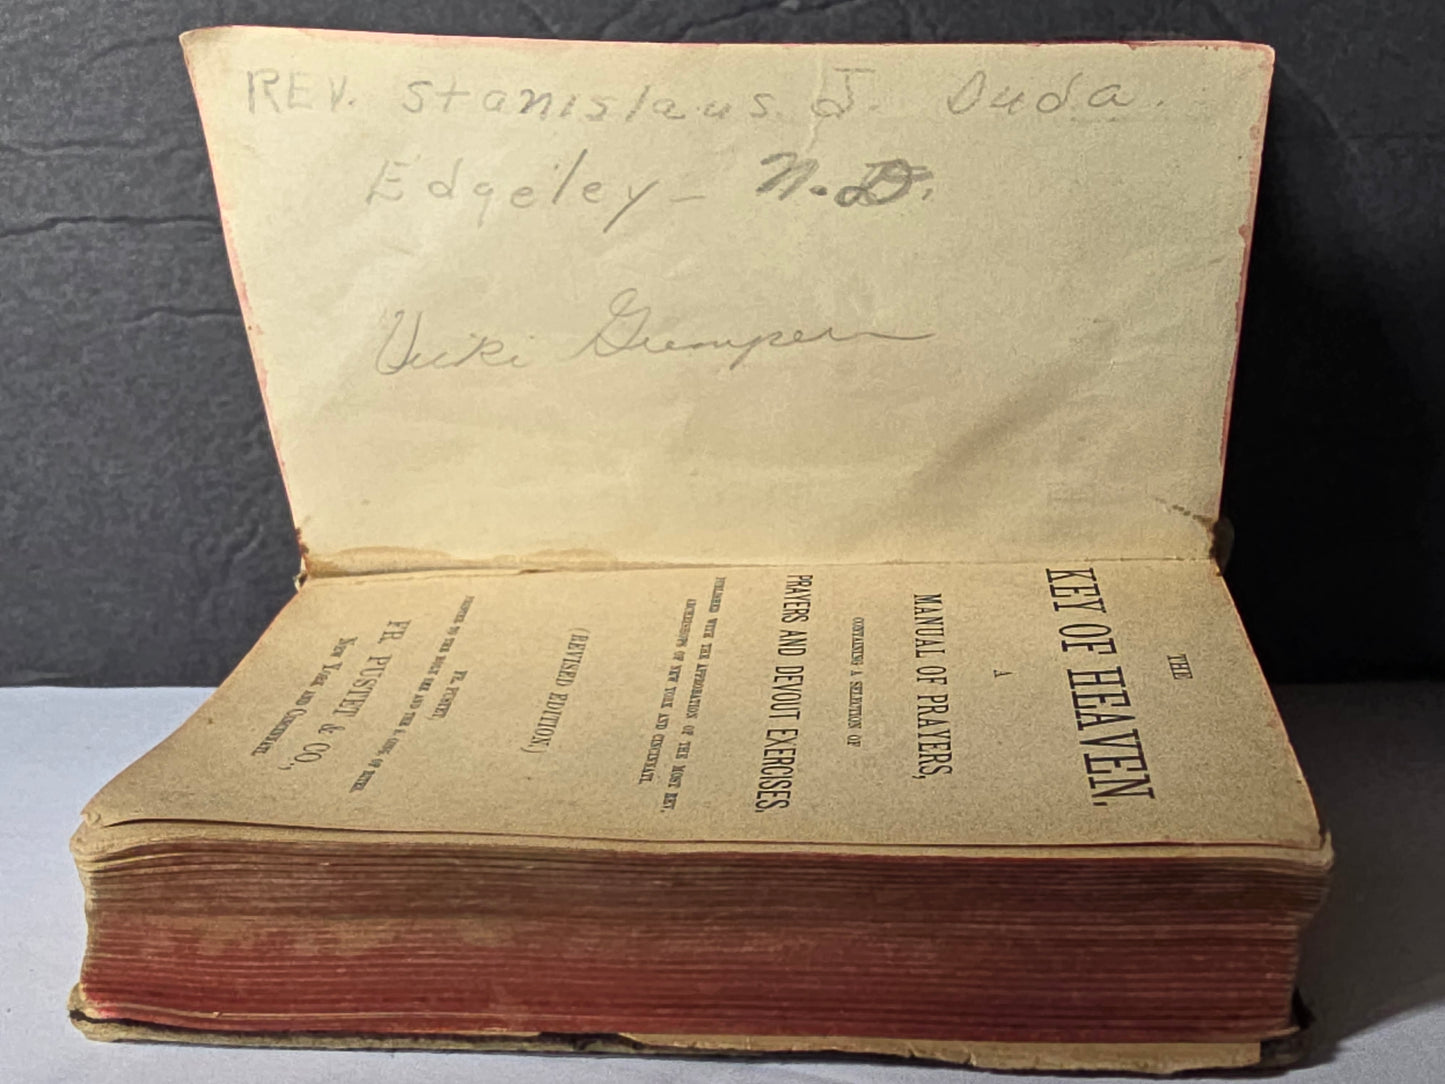 REV. Stanislaus J. Duda.
Edgeley - N.D.
Vicki
THE
KEY OF HEAVEN,
A
MANUAL OF PRAYERS,
CONTAINING A SELECTION OF
PRAYERS AND DEVOUT EXERCISES.
PUBLISHED WITH THE APPROBATION OF THE MOST REV.
ARCHBISHOPS OF NEW YORK AND CINCINNATI.
(REVISED EDITION.)
FR. PUSTET,
PRINTER TO THE HOLY SEE AND THE S. CONG. OF RITES.
FR. PUSTET & CO.,
NEW YORK AND CINCINNATI.